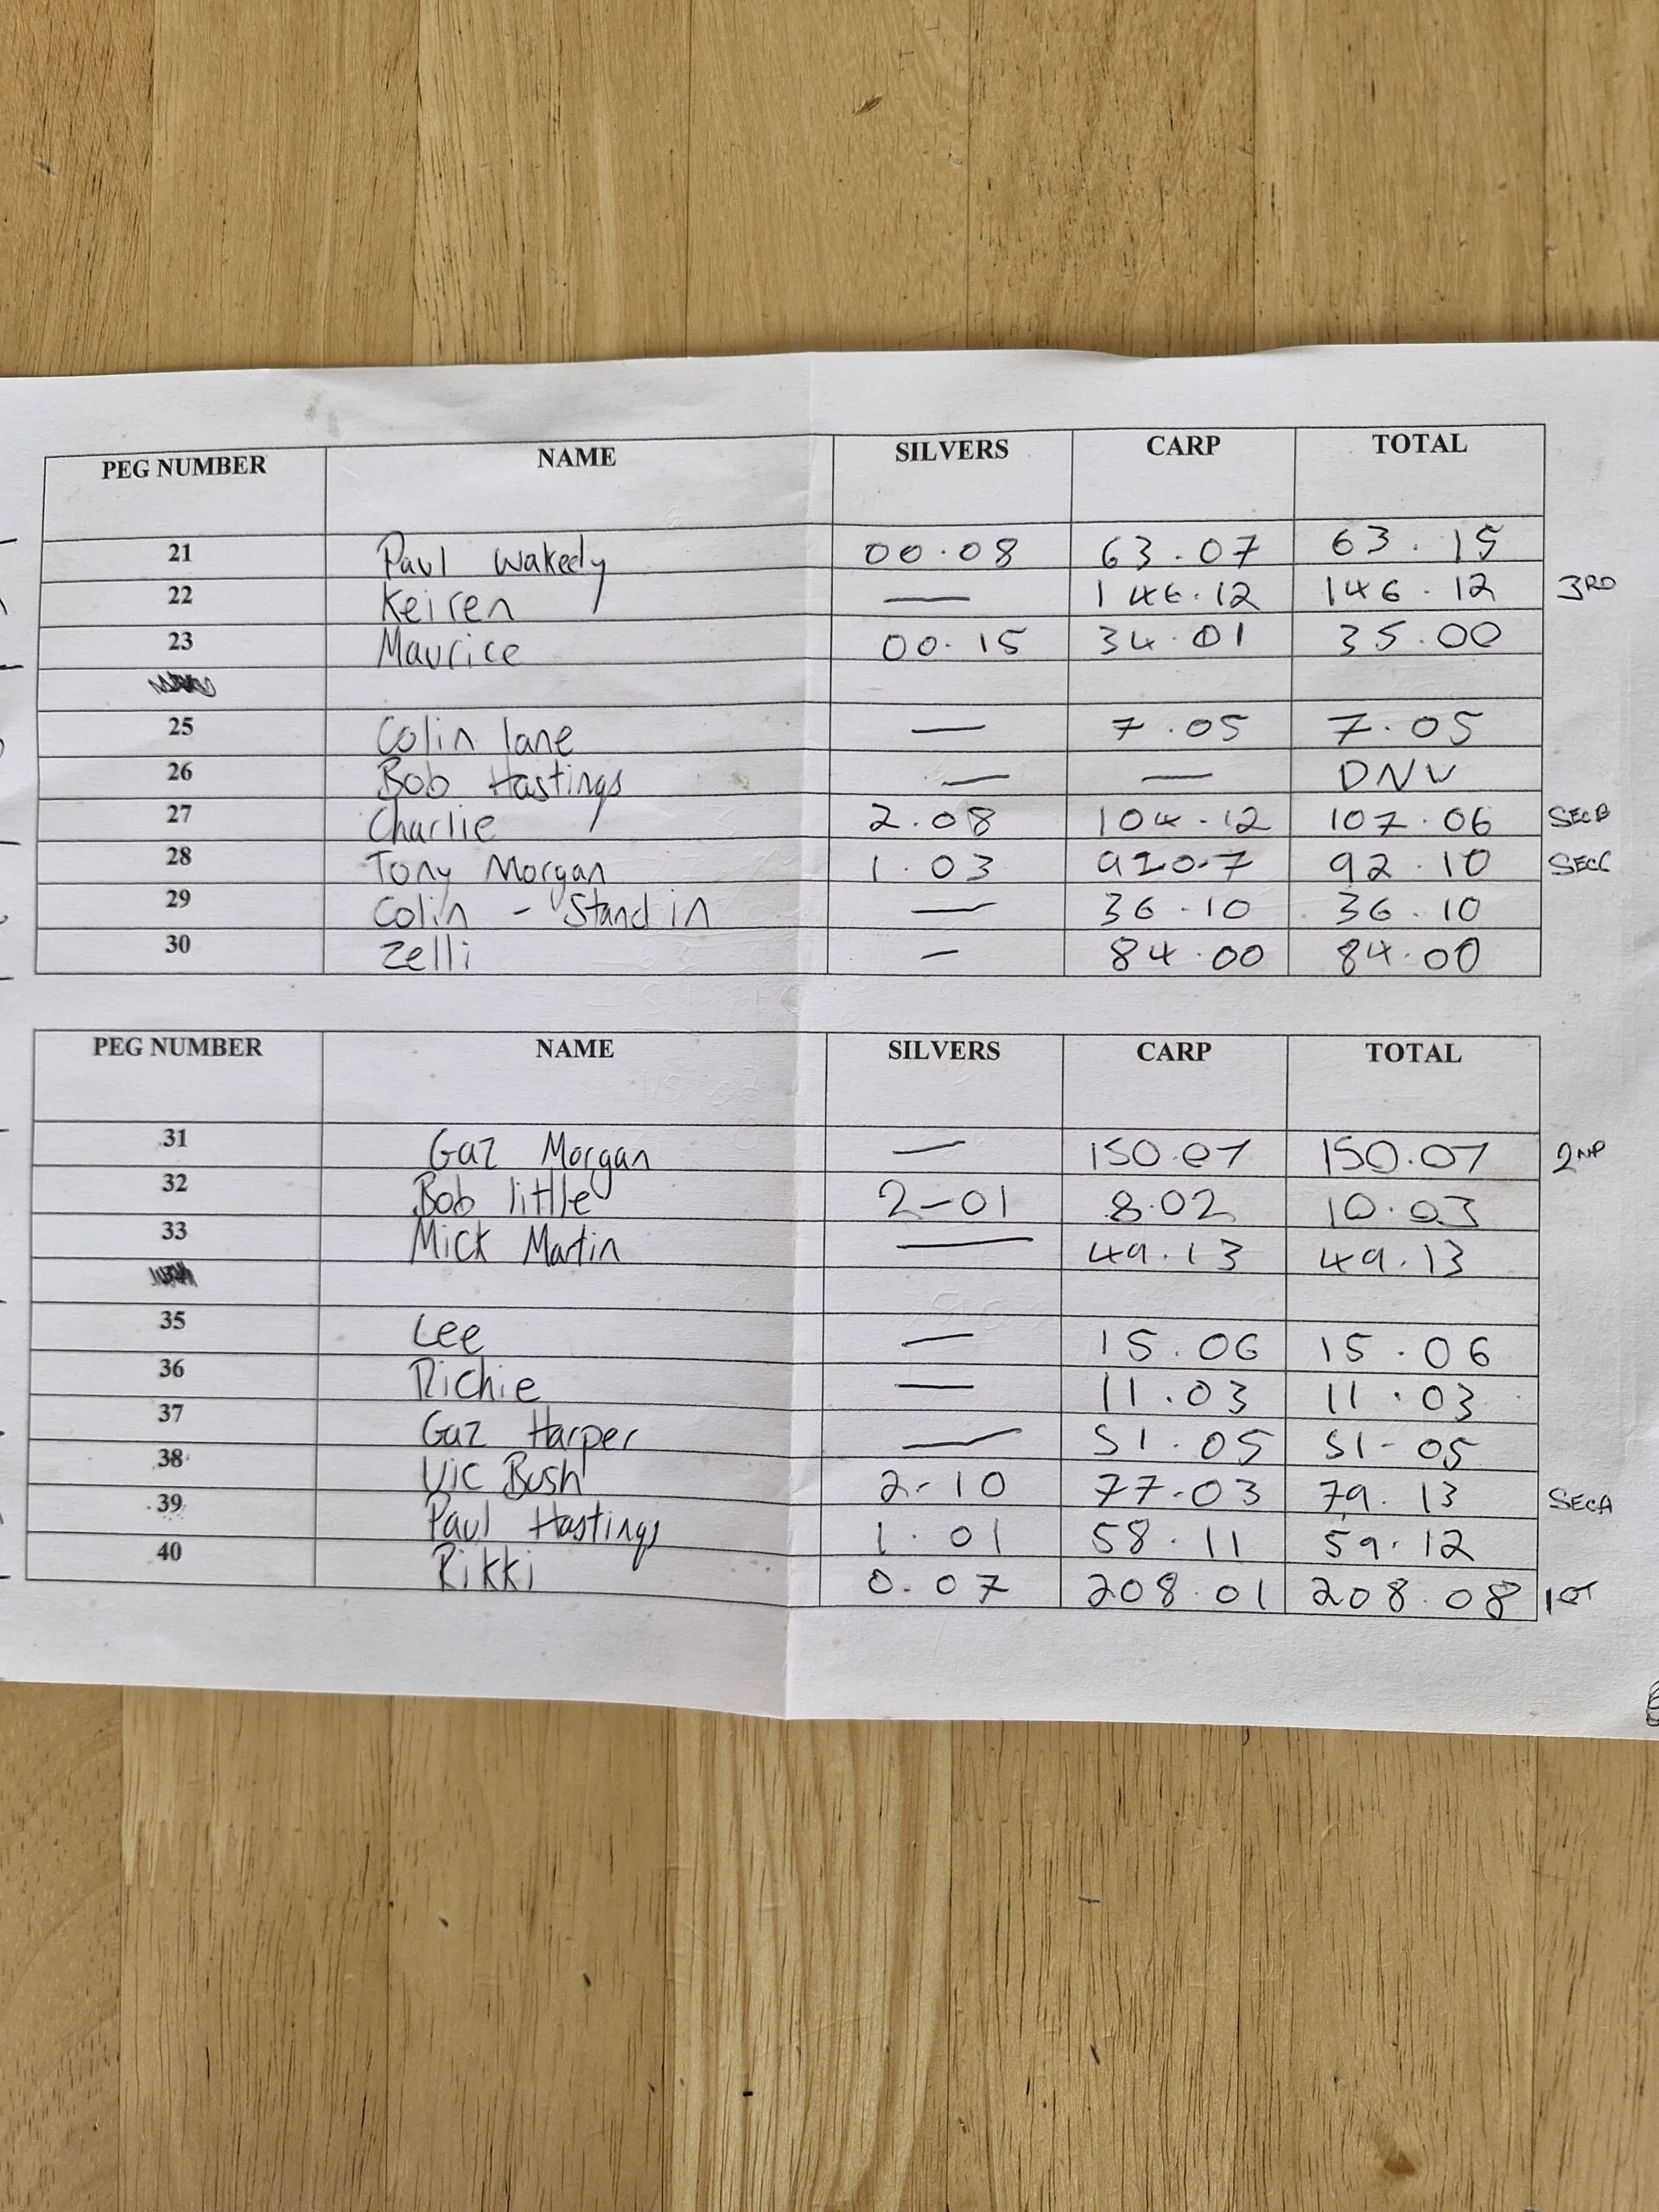 PEG NUMBER NAME SILVERS CARP TOTAL
21 Paul Wakedy 00.08 63.07 63.15
22 Keiren — 146.12 146.12 3RD
23 Maurice 00.15 34.01 35.00
25 Colin lane — 7.05 7.05
26 Bob Hastings — — DNW
27 Charlie 2.08 104.12 107.06 SECB
28 Tony Morgan 1.03 910.7 92.10 SECC
29 Colin - Stand in — 36.10 36.10
30 Zelli — 84.00 84.00
PEG NUMBER NAME SILVERS CARP TOTAL
31 Gaz Morgan — 150.07 150.07 2ND
32 Bob little 2-01 8.02 10.03
33 Mick Martin — 49.13 49.13
35 Lee — 15.06 15.06
36 Richie — 11.03 11.03
37 Gaz Harper — 51.05 51-05
38 Vic Bush 2-10 77-03 79.13 SECA
39 Paul Hastings 1.01 58.11 59.12
40 Rikki 0.07 208.01 208.08 1ST